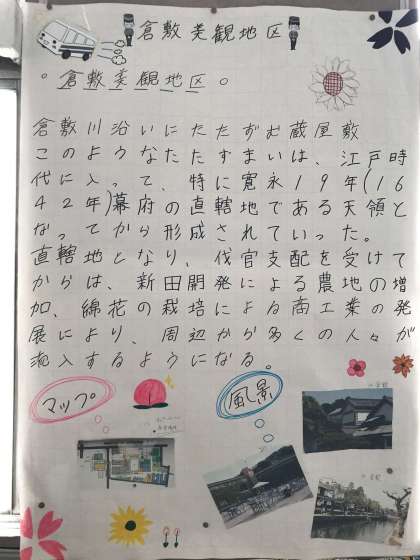 倉敷美観地区
。倉敷美観地区。
倉敷川沿いにたたずむ蔵屋敷
このようなたたずまいは、江戸時
代に入って、特に寛永19年(16
42年)幕府の直轄地である天領と
なってから形成されていった。
直轄地となり、代官支配を受けて
からは、新田開発による農地の増
加、綿花の栽培による商工業の発
展により、周辺から多くの人々が
流入するようになる。
マップ
風景